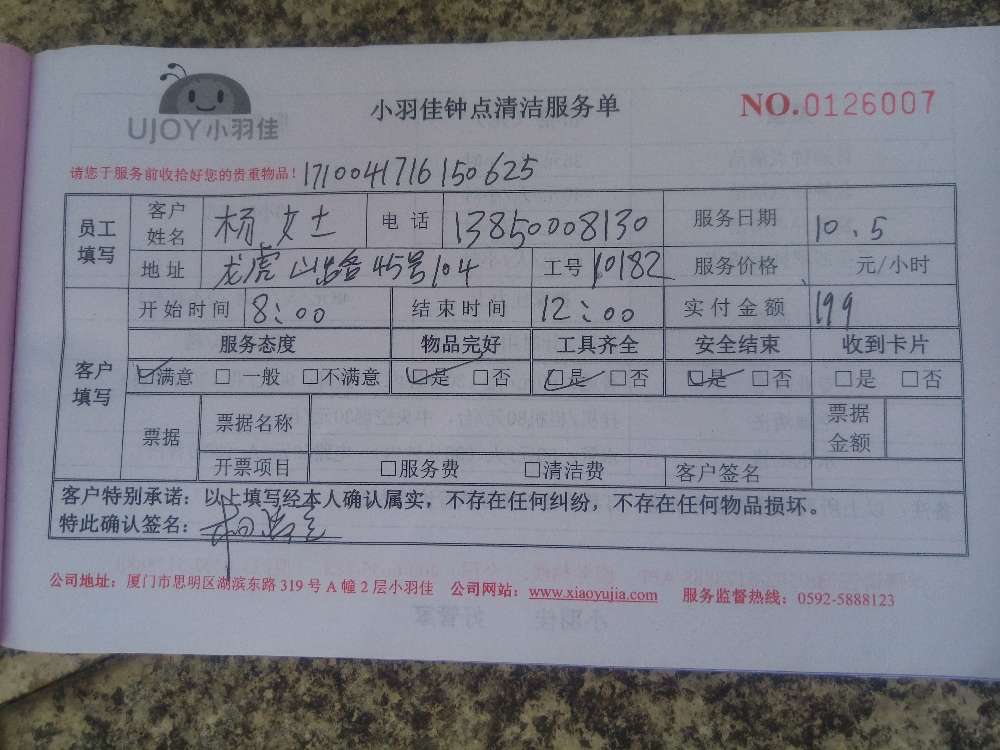 UJOY小羽佳
小羽佳钟点清洁服务单
NO.0126007
请您于服务前收拾好您的贵重物品！ 1710041716150625
员工填写 客户姓名 杨女士 电话 13850008130 服务日期 10.5
地址 龙虎山路45号104 工号 10182 服务价格 元/小时
客户填写 开始时间 8:00 结束时间 12:00 实付金额 199
服务态度 物品完好 工具齐全 安全结束 收到卡片
☑满意 □一般 □不满意 ☑是 □否 ☑是 □否 ☑是 □否 □是 □否
票据 票据名称 票据金额
开票项目 □服务费 □清洁费 客户签名
客户特别承诺：以上填写经本人确认属实，不存在任何纠纷，不存在任何物品损坏。
特此确认签名：
公司地址：厦门市思明区湖滨东路 319 号 A 幢 2 层小羽佳 公司网站：www.xiaoyujia.com 服务监督热线：0592-5888123